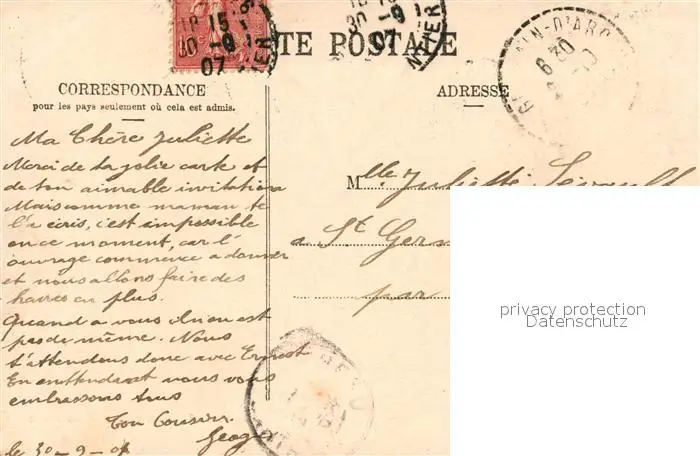 15
30 -9
07
CARTE POSTALE
CORRESPONDANCE
pour les pays seulement où cela est admis.
ADRESSE
Ma Chère Juliette
Merci de ta jolie carte et
de ton aimable invitation
Mais comme maman te
l'a écris, c'est impossible
en ce moment, car l'
ouvrage commence a donner
et nous allons faire des
heures en plus.
Quand a vous il n'en est
pas de même. Nous
t'attendons donc avec Ernest
En attendant nous vous
embrassons tous
Ton Cousin
le 30-9-07
Mlle Juliette
a St Germ
par
privacy protection
Datenschutz